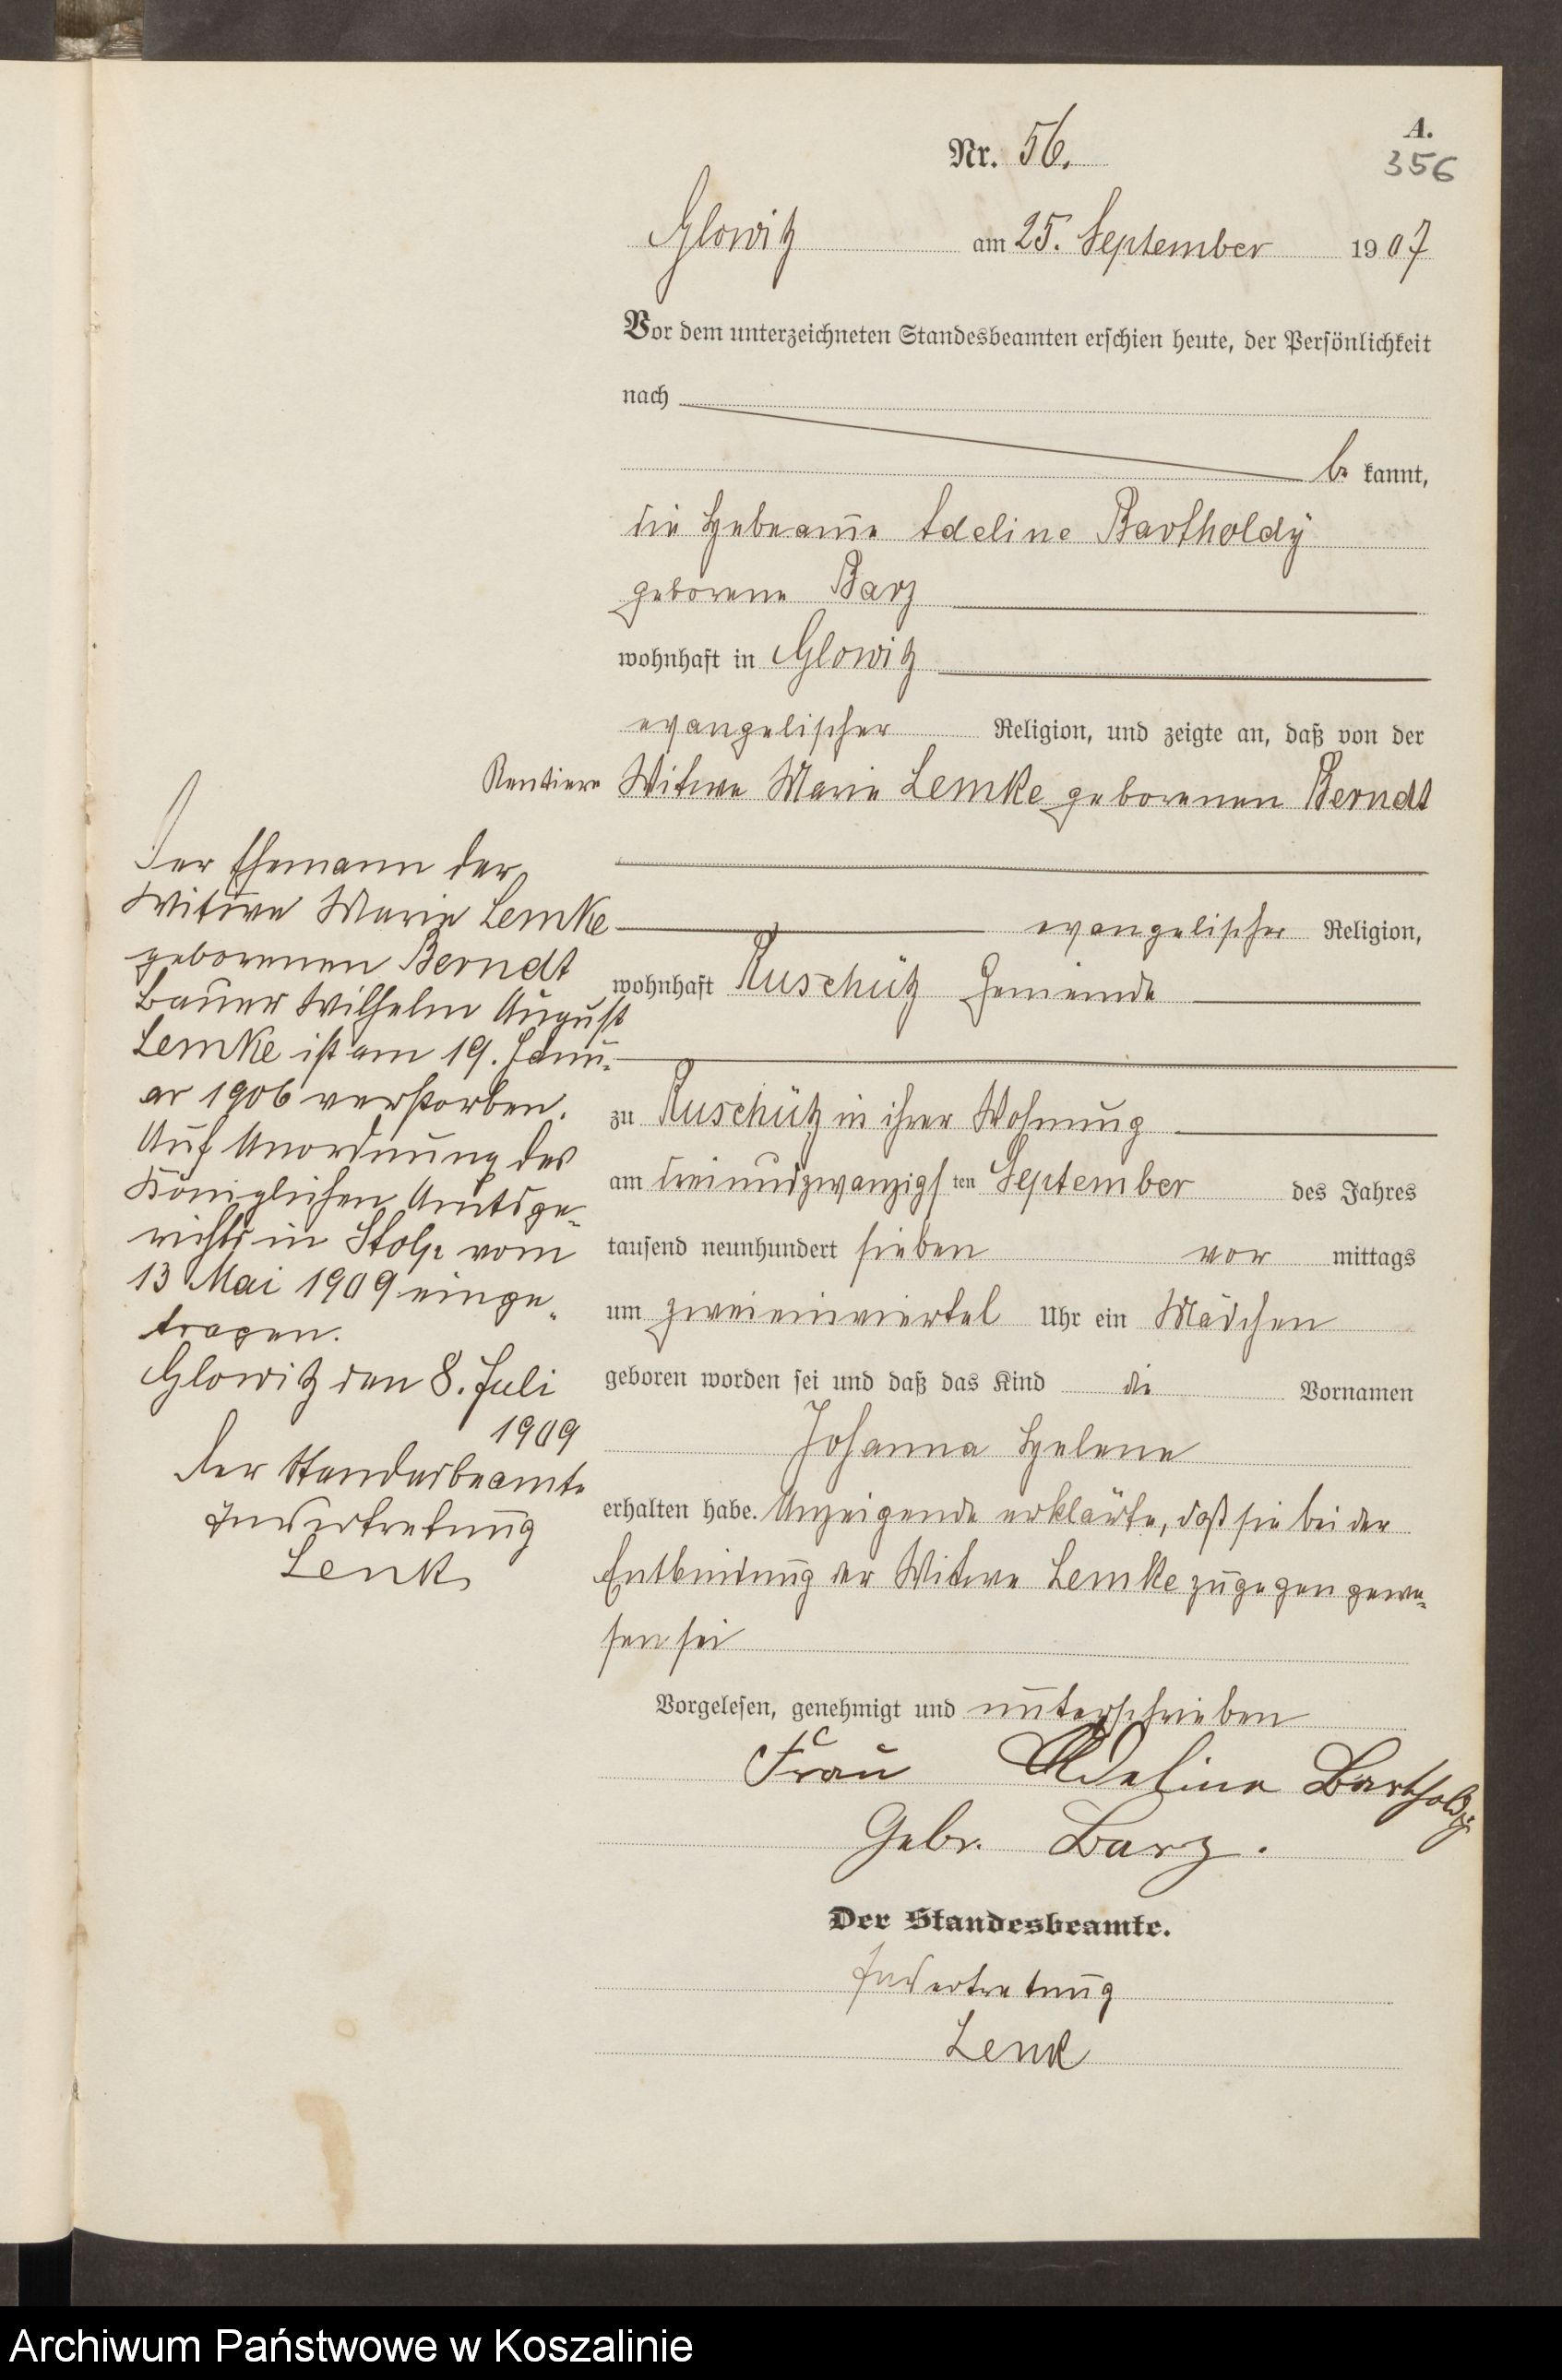 A.
356
Nr. 56.
Glowitz am 25. September 1907
Vor dem unterzeichneten Standesbeamten erschien heute, der Persönlichkeit
nach
be kannt,
die Hebeamme Adeline Bartholdy
geborene Barz
wohnhaft in Glowitz
evangelischer Religion, und zeigte an, daß von der
Rentiere Witwe Marie Lemke geborenen Berndt
evangelischer Religion,
wohnhaft Ruschütz Gemeinde
zu Ruschütz in ihrer Wohnung
am dreiundzwanzigsten September des Jahres
tausend neunhundert sieben vor mittags
um zweieinviertel Uhr ein Mädchen
geboren worden sei und daß das Kind die Vornamen
Johanna Helene
erhalten habe. Anzeigende erklärte, daß sie bei der
Entbindung der Witwe Lemke zugegen gewe-
sen sei
Vorgelesen, genehmigt und unterschrieben
Frau Adeline Bartholdy
Gebr. Barz.
Der Standesbeamte.
In Vertretung
Lenk
Der Ehemann der
Witwe Marie Lemke
geborenen Berndt
Bauer Wilhelm August
Lemke ist am 19. Janu-
ar 1906 verstorben.
Auf Anordnung des
Königlichen Amtsge-
richts in Stolp vom
13 Mai 1909 einge-
tragen.
Glowitz den 8. Juli
1909
Der Standesbeamte
In Vertretung
Lenk
Archiwum Państwowe w Koszalinie